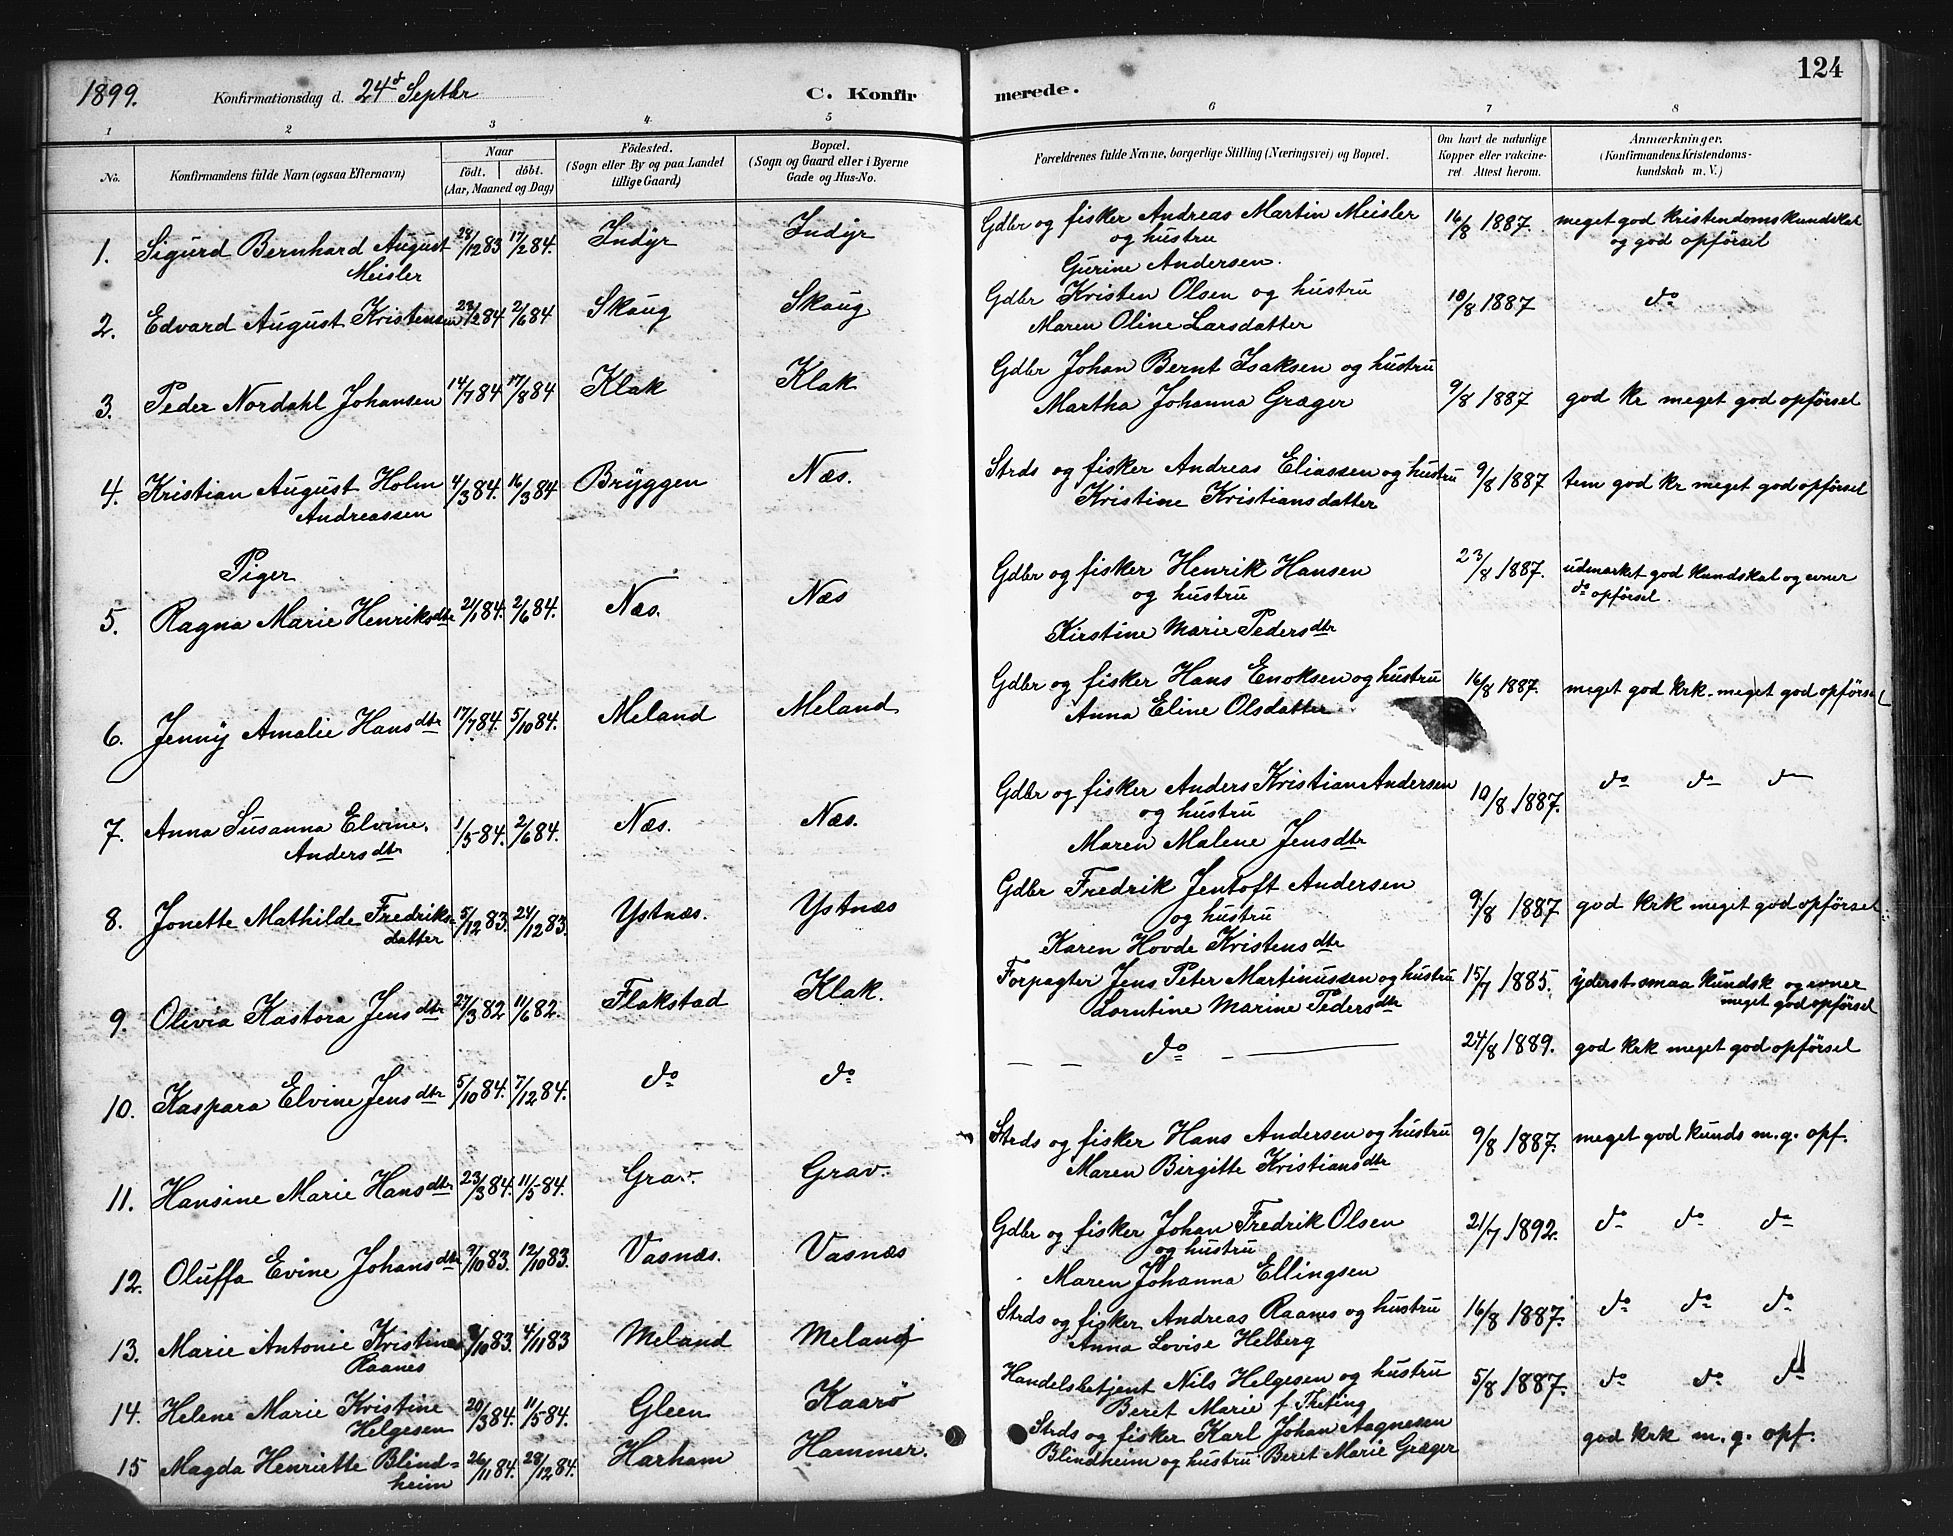 1899. Konfirmationsdag d. 24d Septbr C. Konfirmerede. 124
1 2 3 4. 5 6 7 8
No. Konfirmandens fulde Navn (ogsaa Efternavn) Naar födt. döbt. (Aar, Maaned og Dag) Födested. (Sogn eller By og paa Landet tillige Gaard) Bopæl. (Sogn og Gaard eller i Byerne Gade og Hus-No. Forældrenes fulde Navne, borgerlige Stilling (Næringsvei) og Bopæl. Om havt de naturlige Kopper eller vakcineret Attest herom. Anmærkninger. (Konfirmandens Kristendomskundskab m. V.)
1. Sigurd Bernhard August 28/12 83 17/2 84. Indyr Indyr Gdbr og fisker Andreas Martin Meisler 16/8 1887. meget god kristendomskundskab
Meisler og hustru og god opförsel
Gurine Andersen.
2. Edvard August Kristensen 2/6 84 Skaug Skaug Gdbr Kristen Olsen og hustru 10/8 1887 do
Maren Oline Larsdatter
3. Peder Nordahl Johansen 14/7 84 17/8 84 Klak Klak Gdbr Johan Bernt Isaksen og hustru
Martha Johanna Græger 9/8 1887 god kr meget god opförsel
4. Kristian August Holm 4/3 84. 16/3 84 Bryggen Næs. Strds og fisker Andreas Eliassen og hustru 9/8 1887 tem god kr meget god opförsel
Andreassen Kristine Kristiansdatter
Piger
5. Ragna Marie Henriksdtr 21/1 84. 2/6 84. Næs. Næs Gdbr og fisker Henrik Hansen 23/8 1887. udmærket god kundskab og evner
og hustru do opförsel.
Kirstine Marie Pedersdtr
6. Jenny Amalie Hansdtr 17/7 84. 5/10 84. Meland Meland Gdbr og fisker Hans Enoksen og hustru 16/8 1887. meget god krk. meget god opförsel
Anna Eline Olsdatter
7. Anna Susanna Elvine. 1/5 84. 2/6 84. Næs. Næs. Gdbr og fisker Anders Kristian Andersen 10/8 1887. do do do
Andersdtr og hustru
Maren Malene Jensdtr
8. Jonette Mathilde Fredriks- 5/12 83. 24/12 83. Ystnæs. Ystnæs Gdbr Fredrik Jentoft Andersen 9/8 1887 god krk meget god opförsel
datter og hustru
Karen Hovde Kristensdtr
9. Olivia Kastora Jensdtr 27/3 82 11/6 82. Flakstad Klak. Forpagter Jens Peter Martinussen og hustru 15/7 1885. yderst smaa kundsk og evner
Lorntine Marine Pedersdtr meget god opförsel
10. Kaspara Elvine Jensdtr 5/10 84. 7/12 84. do do — — do — 24/8 1889. god krk meget god opförsel
11. Hansine Marie Hansdtr 23/3 84. 11/5 84. Grav. Grav. Strds og fisker Hans Andersen og hustru 9/8 1887. meget god kunds m. g. opf.
Maren Birgitte Kristiansdtr
12. Oluffa Evine Johansdtr 9/10 83. 12/10 83. Vasnæs. Vasnæs Gdbr og fisker Johan Fredrik Olsen 21/7 1892. do do do
og hustru
Maren Johanna Ellingsen
13. Marie Antonie Kristine 4/11 83 Meland Meland Strds og fisker Andreas Raanes og hustru 16/8 1887. do do do
Raanes Anna Lovise Helberg
14. Helene Marie Kristine 20/3 84. 11/5 84. Gleen Kaarö Handelsbetjent Nils Helgesen og hustru 5/8 1887. do do do
Helgesen Beret Marie f.
15 Magda Henriette Blind= 26/11 84. 28/12 84. Harham Hammer. Strds og fisker Karl Johan Aagnesen god krk m. g. opf.
heim Blindheim og hustru Beret Marie Græger